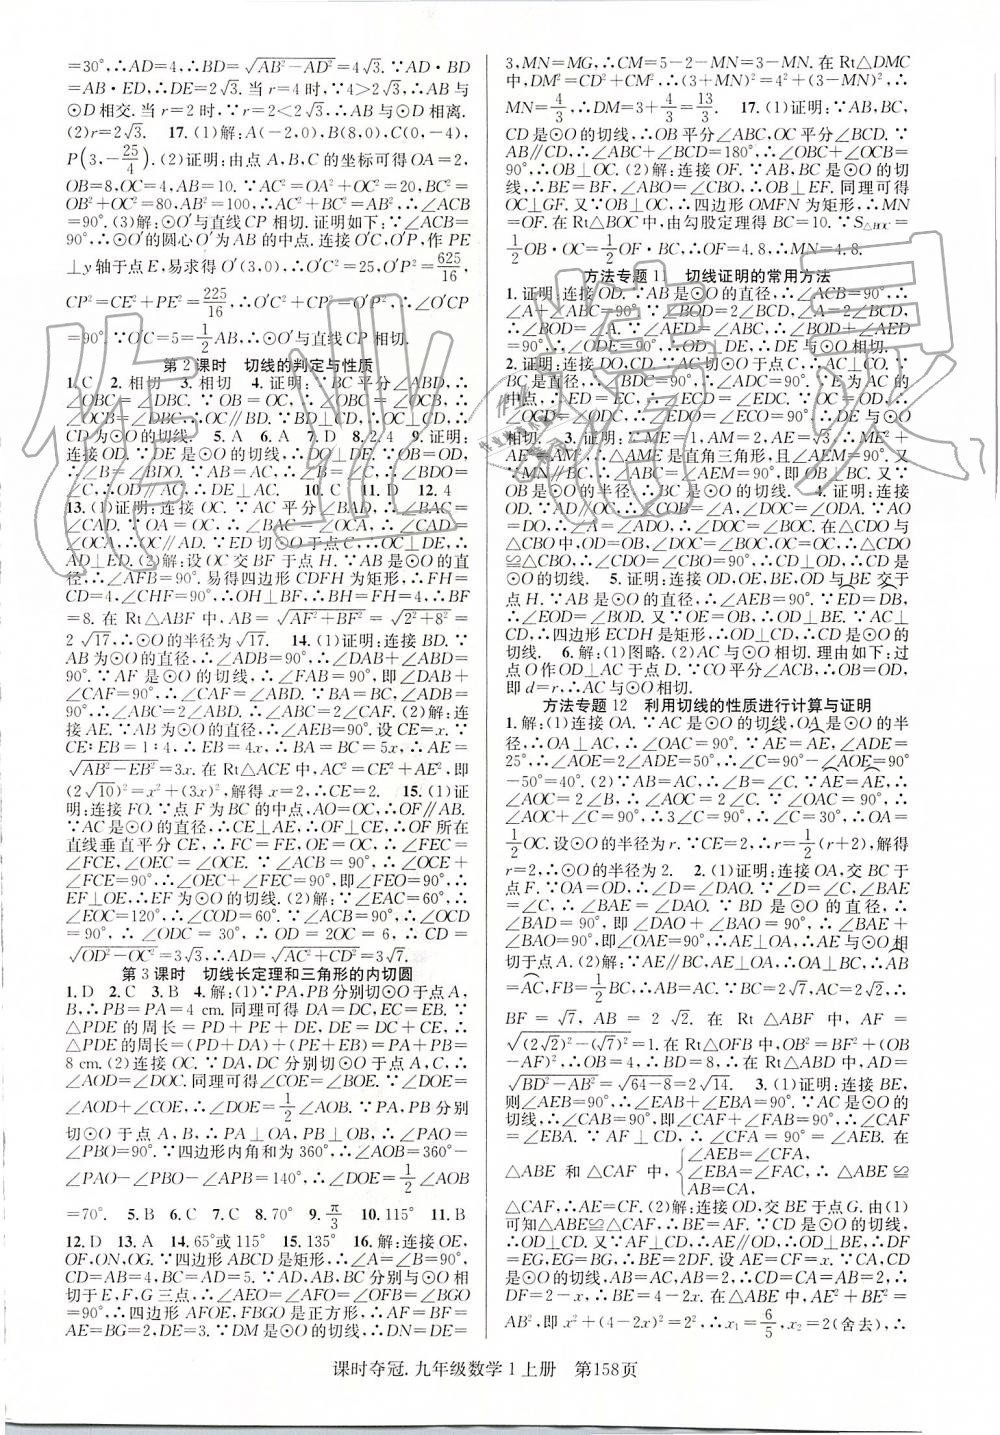 =30°,∴AD=4,∴BD=√(AB²-AD²)=4√3. ∵AD·BD
=AB·ED,∴DE=2√3. 当r=4时,∵4>2√3,∴AB与
⊙D相交. 当r=2时,∵r=2<2√3,∴AB与⊙D相离.
(2)r=2√3. 17. (1)解:A(-2,0),B(8,0),C(0,-4),
P(3,-25/4). (2)证明:由点A,B,C的坐标可得OA=2,
OB=8,OC=4,AB=10. ∵AC²=OA²+OC²=20,BC²=
OB²+OC²=80,AB²=100,∴AC²+BC²=AB²,∴∠ACB
=90°. (3)解:⊙O′与直线CP相切. 证明如下:∵∠ACB=
90°,∴⊙O′的圆心O′为AB的中点. 连接O′C,O′P,作PE
⊥y轴于点E,易求得O′(3,0),∴O′C²=25,O′P²=625/16,
CP²=CE²+PE²=225/16,∴O′C²+CP²=O′P²,∴∠O′CP
=90°. ∵O′C=5=1/2AB,∴⊙O′与直线CP相切.
第2课时 切线的判定与性质
1. C 2. 相切 3. 相切 4. 证明:∵BC平分∠ABD,∴
∠OBC=∠DBC. ∵OB=OC,∴∠OBC=∠OCB,∴
∠OCB=∠DBC,∴OC∥BD. ∵BD⊥CD,∴OC⊥CD,∴
CD为⊙O的切线. 5. A 6. A 7. D 8. 2,4 9. 证明:
连接OD. ∵DE是⊙O的切线,∴OD⊥DE. ∵OB=OD,
∴∠B=∠BDO. ∵AB=AC,∴∠B=∠C,∴∠BDO=
∠C,∴OD∥AC,∴DE⊥AC. 10. C 11. D 12. 4
13. (1)证明:连接OC. ∵AC平分∠BAD,∴∠BAC=
∠CAD. ∵OA=OC,∴∠BAC=∠OCA,∴∠CAD=
∠OCA,∴OC∥AD. ∵ED切⊙O于点C,∴OC⊥DE,∴
AD⊥ED. (2)解:设OC交BF于点H. ∵AB为⊙O的直
径,∴∠AFB=90°. 易得四边形CDFH为矩形,∴FH=
CD=4,∠CHF=90°,∴OH⊥BF,∴BH=FH=4,∴BF
=8. 在Rt△ABF中,AB=√(AF²+BF²)=√(2²+8²)=
2√17,∴⊙O的半径为√17. 14. (1)证明:连接BD. ∵
AB为⊙O的直径,∴∠ADB=90°,∴∠DAB+∠ABD=
90°. ∵AF是⊙O的切线,∴∠FAB=90°,即∠DAB+
∠CAF=90°,∴∠CAF=∠ABD. ∵BA=BC,∠ADB=
90°,∴∠ABC=2∠ABD,∴∠ABC=2∠CAF. (2)解:连
接AE. ∵AB为⊙O的直径,∴∠AEB=90°. 设CE=x. ∵
CE∶EB=1∶4,∴EB=4x,∴BA=BC=5x,∴AE=
√(AB²-EB²)=3x. 在Rt△ACE中,AC²=CE²+AE²,即
(2√10)²=x²+(3x)²,解得x=2,∴CE=2. 15. (1)证
明:连接FO. ∵点F为BC的中点,AO=OC,∴OF∥AB.
∵AC是⊙O的直径,∴CE⊥AE,∴OF⊥CE,∴OF所在
直线垂直平分CE,∴FC=FE,OE=OC,∴∠FEC=
∠FCE,∠OEC=∠OCE. ∵∠ACB=90°,∴∠OCE+
∠FCE=90°,∴∠OEC+∠FEC=90°,即∠FEO=90°,∴
EF⊥OE,∴EF为⊙O的切线. (2)解:∵∠EAC=60°,∴
∠EOC=120°,∴∠COD=60°. ∵∠ACB=90°,∴∠OCD
=90°,∴∠ODC=30°,∴OD=2OC=6,∴CD=
√(OD²-OC²)=3√3,∴AD=√(AC²+CD²)=3√7.
第3课时 切线长定理和三角形的内切圆
1. D 2. C 3. B 4. 解:(1)∵PA,PB分别切⊙O于点A,
B,∴PB=PA=4 cm. 同理可得DA=DC,EC=EB. ∵
△PDE的周长=PD+PE+DE,DE=DC+CE,∴
△PDE的周长=(PD+DA)+(PE+EB)=PA+PB=
8 cm. (2)连接OC. ∵DA,DC分别切⊙O于点A,C,∴
∠AOD=∠DOC. 同理可得∠COE=∠BOE. ∵∠DOE=
∠AOD+∠BOE,∴∠DOE=1/2∠AOB. ∵PA,PB分别
切⊙O于点A,B,∴PA⊥OA,PB⊥OB,∴∠PAO=
∠PBO=90°. ∵四边形内角和为360°,∴∠AOB=360°-
∠PAO-∠PBO-∠APB=140°,∴∠DOE=1/2∠AOB
=70°. 5. B 6. C 7. C 8. 70° 9. π/3 10. 115° 11. B
12. D 13. A 14. 65°或115° 15. 135° 16. 解:连接OE,
OF,ON,OG. ∵四边形ABCD是矩形,∴∠A=∠B=90°,
CD=AB=4,BC=AD=5. ∵AD,AB,BC分别与⊙O相
切于E,F,G三点,∴∠AEO=∠AFO=∠OFB=∠BGO
=90°,∴四边形AFOE,FBGO是正方形,∴AF=BF=
AE=BG=2,DE=3. ∵DM是⊙O的切线,∴DN=DE=
3,MN=MG,∴CM=5-2-MN=3-MN. 在Rt△DMC
中,DM²=CD²+CM²,∴(3+MN)²=4²+(3-MN)²,∴
MN=4/3,∴DM=3+4/3=13/3. 17. (1)证明:∵AB,BC,
CD是⊙O的切线,∴OB平分∠ABC,OC平分∠BCD. ∵
AB∥CD,∴∠ABC+∠BCD=180°,∴∠OBC+∠OCB=
90°,∴∠BOC=90°. (2)解:连接OF. ∵AB,BC是⊙O的切
线,∴BE=BF,∠ABO=∠CBO,∴OB⊥EF. 同理可得
OC⊥GF. 又∵OB⊥OC,∴四边形OMFN为矩形,∴MN
=OF. 在Rt△BOC中,由勾股定理得BC=10. ∵S△BOC=
1/2OB·OC=1/2OF·BC,∴OF=4.8,∴MN=4.8.
方法专题11 切线证明的常用方法
1. 证明:连接OD. ∵AB是⊙O的直径,∴∠ACB=90°,∴
∠A+∠ABC=90°. ∵∠BOD=2∠BCD,∠A=2∠BCD,
∴∠BOD=∠A. ∵∠AED=∠ABC,∴∠BOD+∠AED=
90°,∴∠ODE=90°,∴OD⊥DE,∴DE与⊙O相切.
2. 证明:连接DO,CD. ∵AC切⊙O于点C,∴AC⊥BC. ∵
BC是直径,∴∠BDC=90°,∴∠ADC=90°. ∵E为AC的
中点,∴ED=EC,∴∠ECD=∠EDC. ∵OC=OD,∴
∠OCD=∠ODC,∴∠EDO=∠ECO=90°,∴DE与⊙O
相切. 3. 证明:∵ME=1,AM=2,AE=√3,∴ME²+
AE²=AM²,∴△AME是直角三角形,且∠AEM=90°. 又
∵MN∥BC,∴∠ABC=∠AEM=90°,即OB⊥BC. 又∵
OB是⊙O的半径,∴BC是⊙O的切线. 4. 证明:连接
OD. ∵AD∥OC,∴∠BOC=∠A,∠DOC=∠ODA. ∵AO
=DO,∴∠A=∠ODA,∴∠BOC=∠DOC. 在△CDO与
△CBO中,OD=OB,∠DOC=∠BOC,OC=OC,∴△CDO
≌△CBO,∴∠CBO=∠CDO=90°,∴OD⊥CD,∴CD是
⊙O的切线. 5. 证明:连接OD,OE,BE,OD与BE交于
点H. ∵BC为⊙O的直径,∴∠BEC=90°. ∵ED=DB,
∴∠EOD=∠BOD. 又∵OE=OB,∴OD⊥BE. ∵AC⊥
CD,∴四边形ECDH是矩形,∴OD⊥CD,∴CD与⊙O相
切. 6. 解:(1)图略. (2)AC与⊙O相切. 理由如下:过
点O作OD⊥AC于点D. ∵CO平分∠ACB,∴OB=OD,
即d=r,∴AC与⊙O相切.
方法专题12 利用切线的性质进行计算与证明
1. 解:(1)连接OA. ∵AC是⊙O的切线,OA是⊙O的半
径,∴∠OAC=90°. ∵AE=AE,∠ADE=
25°,∴∠AOE=2∠ADE=50°,∴∠C=90°-∠AOE=90°
-50°=40°. (2)∵AB=AC,∴∠B=∠C. ∵AE=AE,∴
∠AOC=2∠B,∴∠AOC=2∠C. ∵∠OAC=90°,∴
∠AOC+∠C=90°,∴3∠C=90°,∴∠C=30°,∴OA=
1/2OC. 设⊙O的半径为r. ∵CE=2,∴r=1/2(r+2),解得
r=2,∴⊙O的半径为2. 2. (1)证明:连接OA,交BC于
点F. ∵OA=OD,∴∠D=∠DAO. ∵∠D=∠C,∠C=
∠BAE,∴∠BAE=∠DAO. ∵BD是⊙O的直径,∴
∠BAD=90°,即∠DAO+∠BAO=90°,∴∠BAE+
∠BAO=90°,即∠OAE=90°,∴AE⊥OA,∴AE与⊙O相
切于点A. (2)解:∵AE∥BC,AE⊥OA,∴OA⊥BC,∴AB
=AC,FB=1/2BC,∴AB=AC. ∵BC=2√7,AC=2√2,∴
BF=√7,AB=2√2. 在Rt△ABF中,AF=
√((2√2)²-(√7)²)=1. 在Rt△OFB中,OB²=BF²+(OB
-AF)²,∴OB=4,∴BD=8,∴在Rt△ABD中,AD=
√(BD²-AB²)=√(64-8)=2√14. 3. (1)证明:连接BE,
则∠AEB=90°,∴∠EAB+∠EBA=90°. ∵AC是⊙O
的切线,∴∠CAB=90°,即∠CAF+∠EAB=90°,∴∠CAF
=∠EBA. ∵AF⊥CD,∴∠CFA=90°=∠AEB. 在
△ABE和△CAF中,{∠AEB=∠CFA, ∠EBA=∠FAC, AB=CA, ∴△ABE≌
△CAF,∴AE=CF. (2)解:连接OD,交BE于点G. 由(1)
可知△ABE≌△CAF,∴BE=AF. ∵CD是⊙O的切线,
∴OD⊥CD. 又∵AE⊥CD,∴AE∥OD,∴OD⊥BE,∴DF=
EG,EG=BG,∴BE=2DF. 设AE=CF=x. ∵CA,CD
是⊙O的切线,AB=AC,AB=2,∴CD=AC=AB=2,∴
DF=2-x,∴BE=4-2x. 在△ABE中,AE²+BE²=
AB²,即x²+(4-2x)²=2²,∴x₁=6/5,x₂=2(舍去),∴
课时夺冠. 九年级数学1上册 第158页
作业精灵